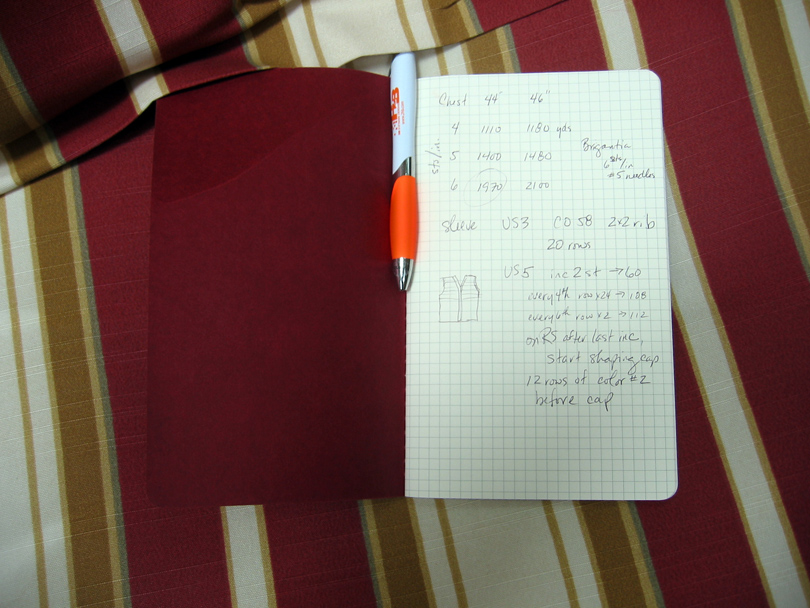 Chest 44" 46"
4 1110 1180 yds
sts/in.
5 1400 1480
6 1970 2100
Brigantia
6 sts/in
#5 needles
sleeve US3 CO 58 2x2 rib
20 rows
US5 inc 2 st → 60
every 4th row x 24 → 108
every 6th row x 2 → 112
on RS after last inc,
start shaping cap
12 rows of color #2
before cap